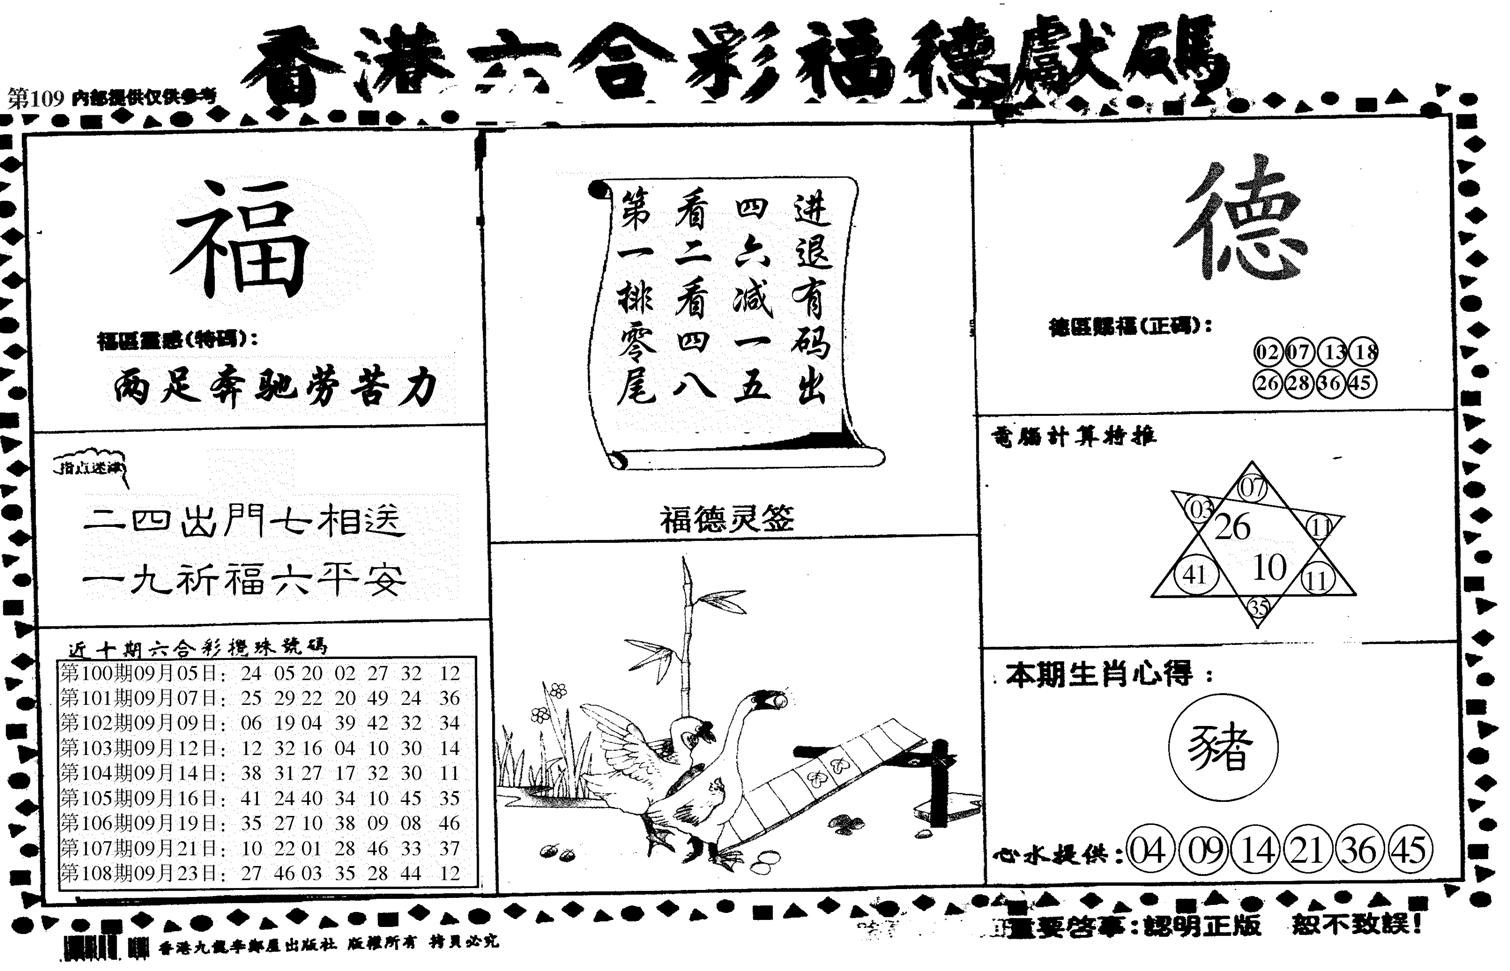 香港六合彩福德獻碼
第109 内部提供仅供参考
福
福區靈感(特碼):
两足奔驰劳苦力
指点迷津
二四出門七相送
一九祈福六平安
近十期六合彩攪珠號碼
第100期09月05日: 24 05 20 02 27 32 12
第101期09月07日: 25 29 22 20 49 24 36
第102期09月09日: 06 19 04 39 42 32 34
第103期09月12日: 12 32 16 04 10 30 14
第104期09月14日: 38 31 27 17 32 30 11
第105期09月16日: 41 24 40 34 10 45 35
第106期09月19日: 35 27 10 38 09 08 46
第107期09月21日: 10 22 01 28 46 33 37
第108期09月23日: 27 46 03 35 28 44 12
进退有码出
四六减一五
看二看四八
第一排零尾
福德灵签
德
德區賜福(正碼):
02 07 13 18
26 28 36 45
電腦計算特推
07
03
26
11
41
10
11
35
本期生肖心得:
豬
心水提供: 04 09 14 21 36 45
香港九龍李鄭屋出版社 版權所有 拷貝必究
重要啓事:認明正版 恕不致誤!